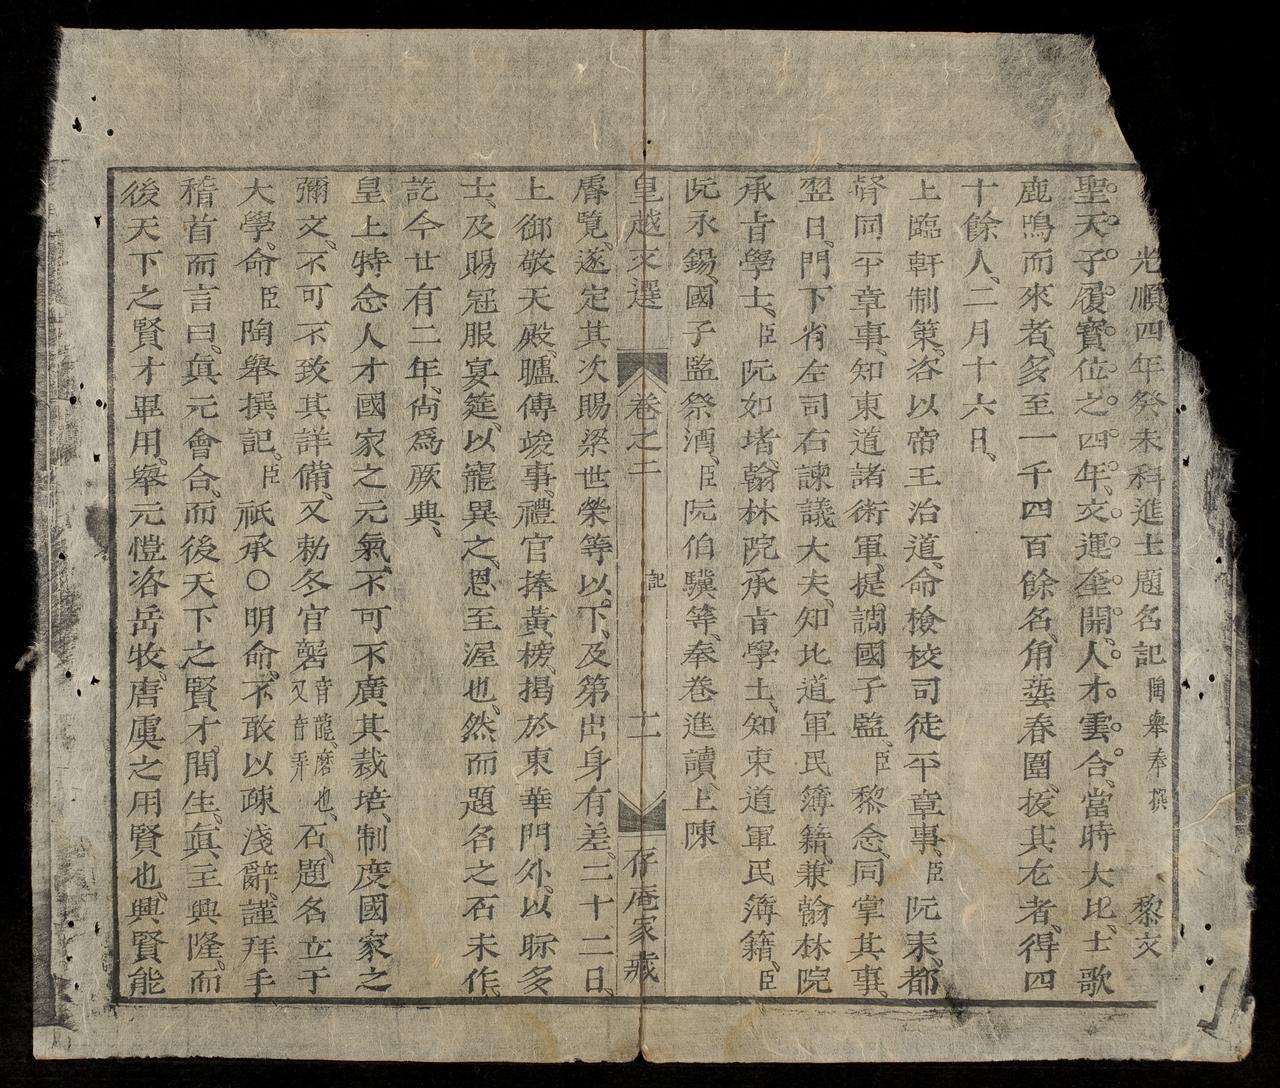 光順四年癸未科進士題名記 陶舉奉撰 黎文
聖天子履寶位之四年、文運奎開、人才雲合、當時大比、士歌
鹿鳴而來者、多至一千四百餘名、角藝春圍、拔其尤者、得四
十餘人、二月十六日、
上臨軒制策、咨以帝王治道、命檢校司徒平章事、臣阮耒、都
督同平章事、知東道諸衛軍、提調國子監、臣黎念、同掌其事、
翌日、門下省左司右諫議大夫、知北道軍民簿籍、兼翰林院
承旨學士、臣阮如堵、翰林院承旨學士、知東道軍民簿籍、臣
阮永錫、國子監祭酒、臣阮伯驥等、奉卷進讀、上陳
皇越文選 卷之二 記 十一 存庵家藏
睿覽、遂定其次賜梁世榮等以下、及第出身有差、二十二日、
上御敬天殿、臚傳竣事、禮官捧黃榜、揭於東華門外、以眎多
士、及賜冠服宴筵、以寵異之、恩至渥也、然而題名之石未作、
訖今廿有二年、尚爲厥典、
皇上特念人才國家之元氣、不可不廣其栽培、制度國家之
彌文、不可不致其詳備、又勅冬官礱音龍、磨也、又音弄石、題名立于
大學、命臣陶舉撰記。臣祇承○明命、不敢以疎淺辭、謹拜手
稽首而言曰、眞元會合、而後天下之賢才間生、眞至興隆、而
後天下之賢才畢用、舉元愷咨岳牧、唐虞之用賢也、興賢能